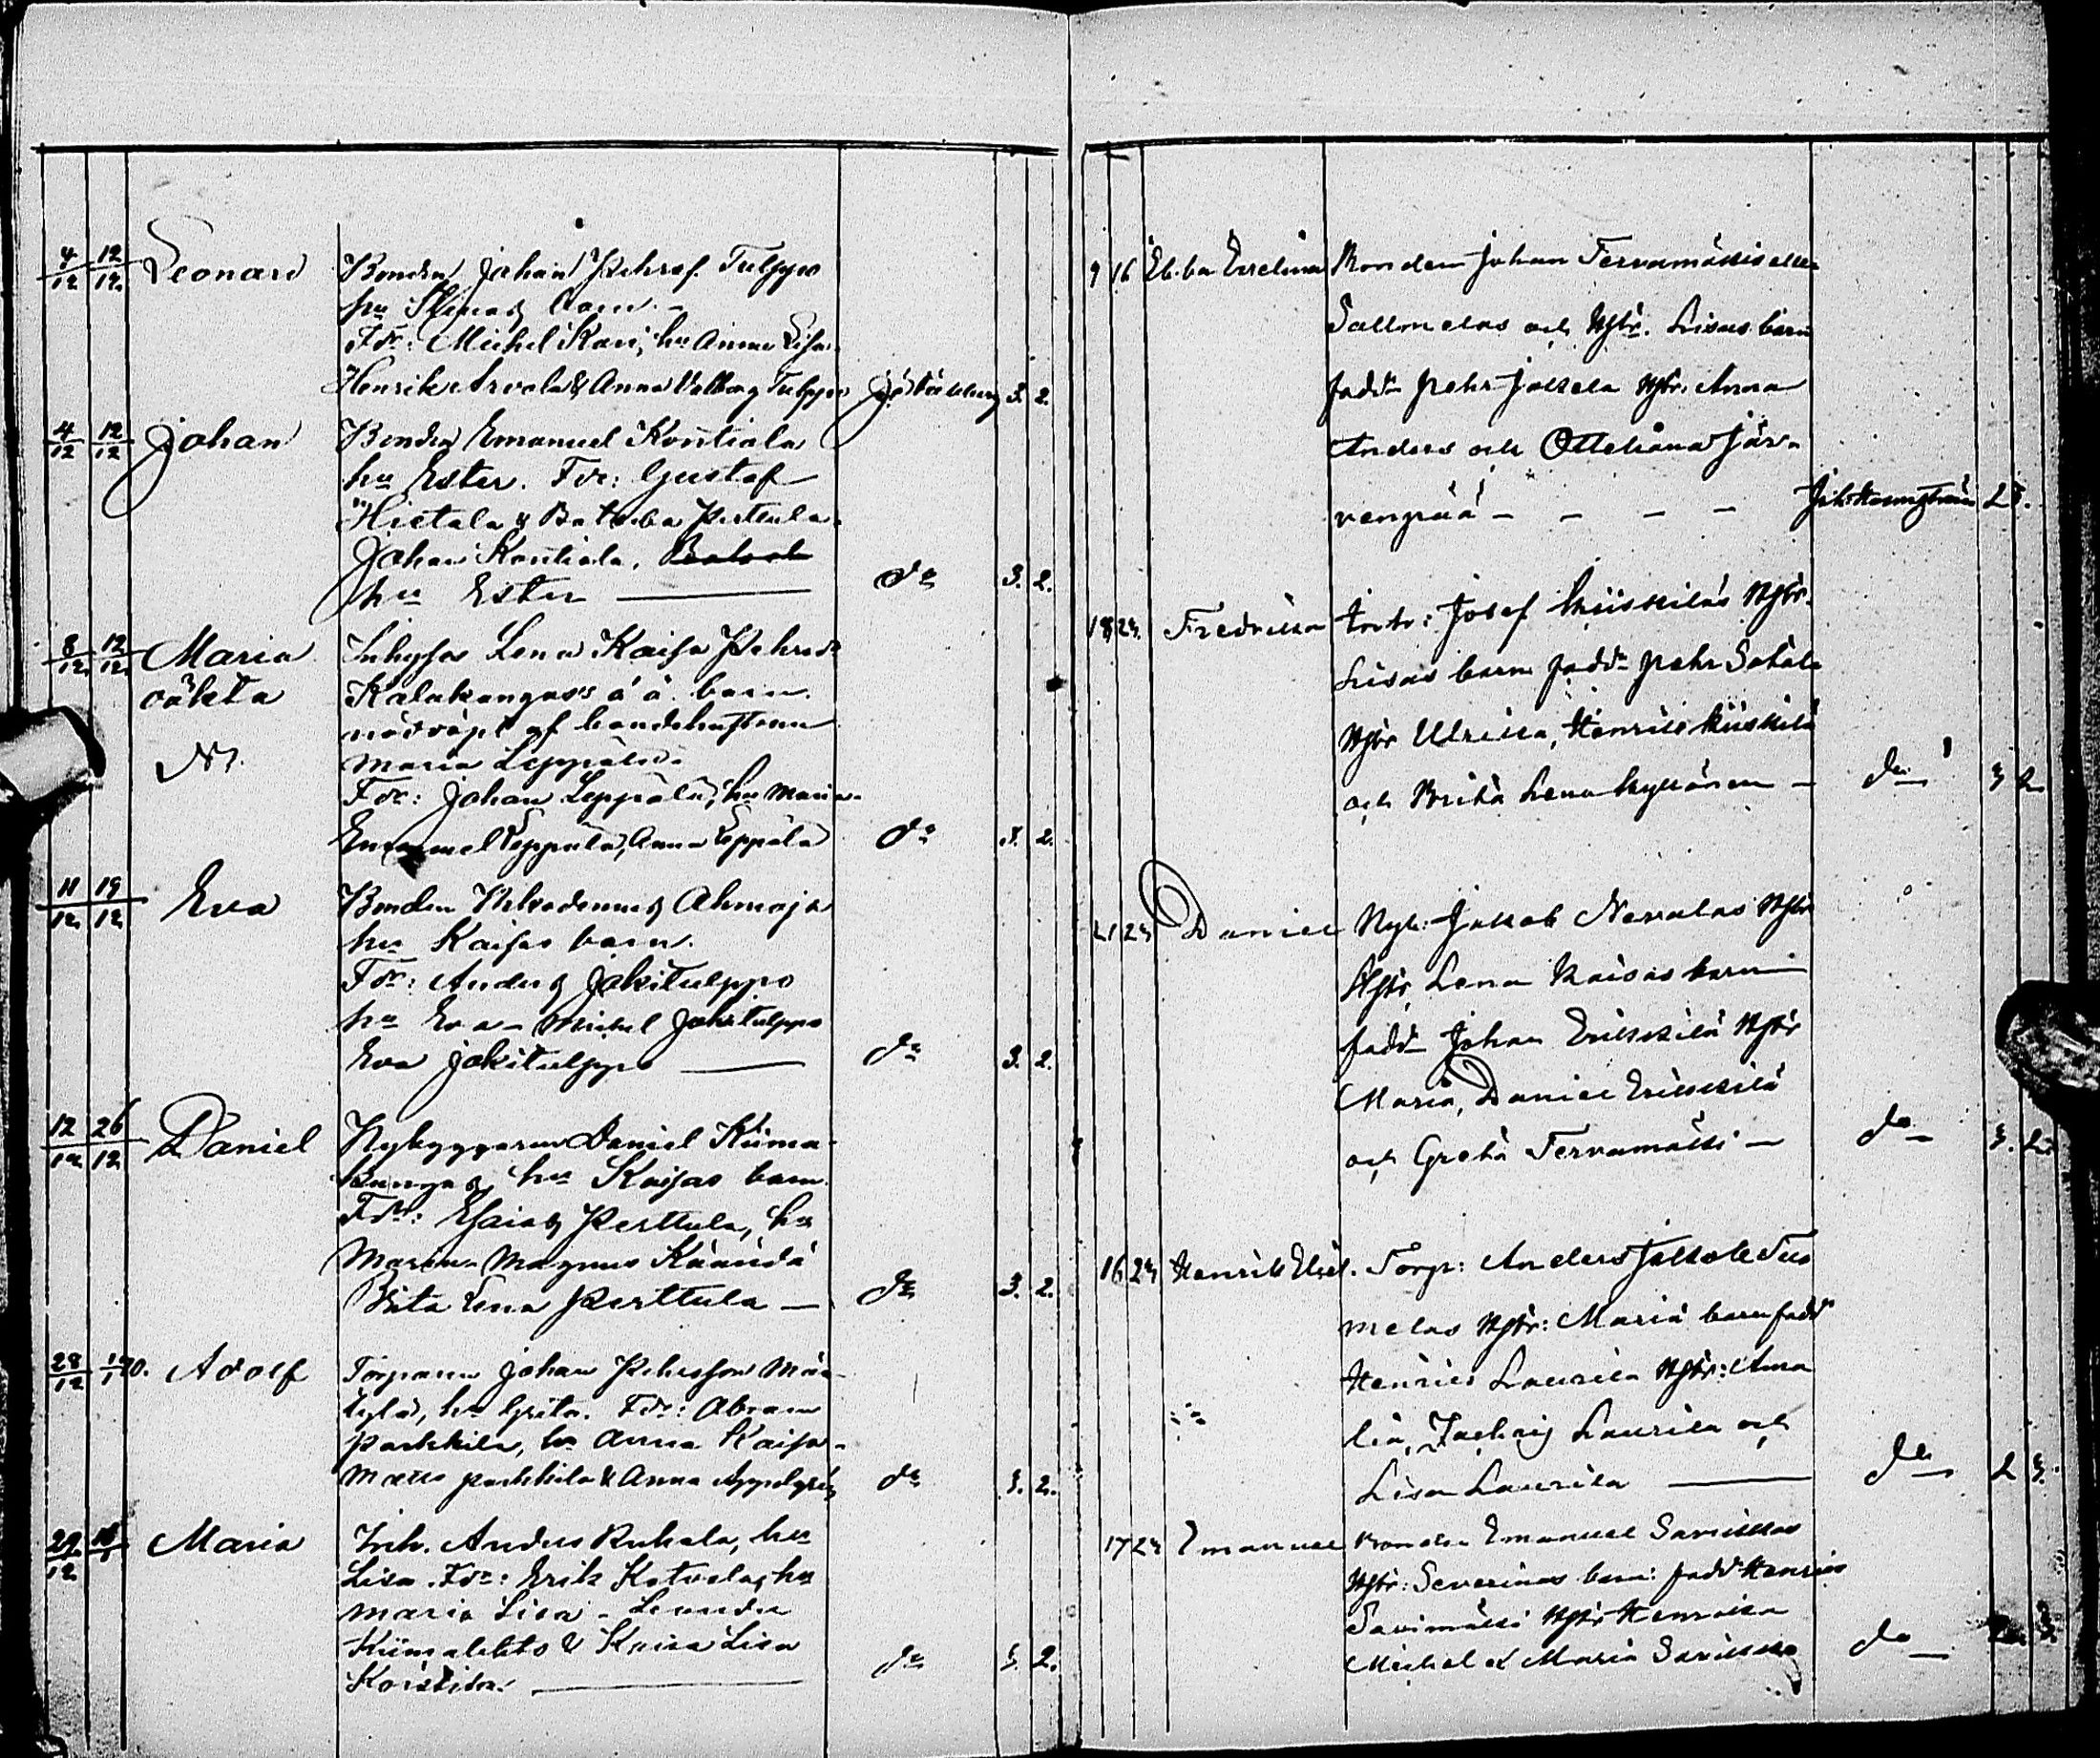 4/12 12/12 Leonard Bonden Johan Pehrsf. Tulppo
hu Stina barn.
Fdr: Michel Kari, hu Anna Lisa
Henrik Arvola & Anna Valborg Tulppo 3. 2.
4/12 12/12 Johan Bonden Emanuel Kontiola
hu Ester. Fdr: Gustaf
Hietala & Perttula
Johan Kontiola,
hu Ester — do 3. 2.
8/12 12/12 Maria Inhyses Lena Kaisa Pehrsdr
oäkta Kalakangas's o ä. barn
nöddöpt af bondehustrun
Maria Leppälä.
Fdr: Johan Leppälä, hu Maria
Emanuel Leppälä, Anna Leppälä do 3. 2.
11/12 19/12 Eva Bonden Nikodemus Ahmaja
hu Kaisas barn.
Fdr: Anders Jokitulppo
hu Eva – Michel Jokitulppo
Eva Jokitulppo — do 3. 2.
12/12 26/12 Daniel Nybyggaren Daniel Kiima
kangas, hu Kaisas barn.
Fdr: Esaias Perttula, hu
Maria – Magnus Kääntä
Brita Lena Perttula — do 3. 2.
28/12 Adolf Torparen Johan Pehrsson Mää-
kylä, hu Greta. Fdr: Abram
Parkkila, hu Anna Kaisa –
Matts Parkkila & Anna do 3. 2.
29/12 Maria Inh. Anders Ruhala, hu
Lisa. Fdr: Erik Kotvala, hu
Maria Lisa – Leander
Kiimalehto & Kaisa Lisa
Koistila — do 3. 2.
9 16 Ebba Evelina Bonden Johan Tervamäkis eller
Salmelas och Hstr. Lisas barn
fadd. Pehr Jokela Hstr. Anna
Anders och Otteliana Jär-
venpää – – – – 2 3.
18 24 Fredrika Josef Kiiskiläs Hstr.
Lisas barn fadd. Pehr
Hstr Ulrika, Henrik Kiiskilä
och Brita Lena Kykkänen – do 3 2
21 24 Daniel Nyb: Jakob Nevalas Hstr
Hstr Lena Kaisas barn
fadd. Johan Erikkilä Hstr
Maria, Daniel Erikkilä
och Greta Tervamäki – do 3. 2.
16 24 Henrik Torp: Anders Jakob Tuo
melas Hstr: Maria barn fadd
Henrik Laurila Hstr: Ama
lia, Laurila och
Lisa Laurila — do 2 3.
17 24 Emanuel Bonden Emanuel Savikkos
Hstr: Severinas barn: fadd Henrik
Savimäki Hstr Henrika
Michel & Maria Savikko do 2. 3.